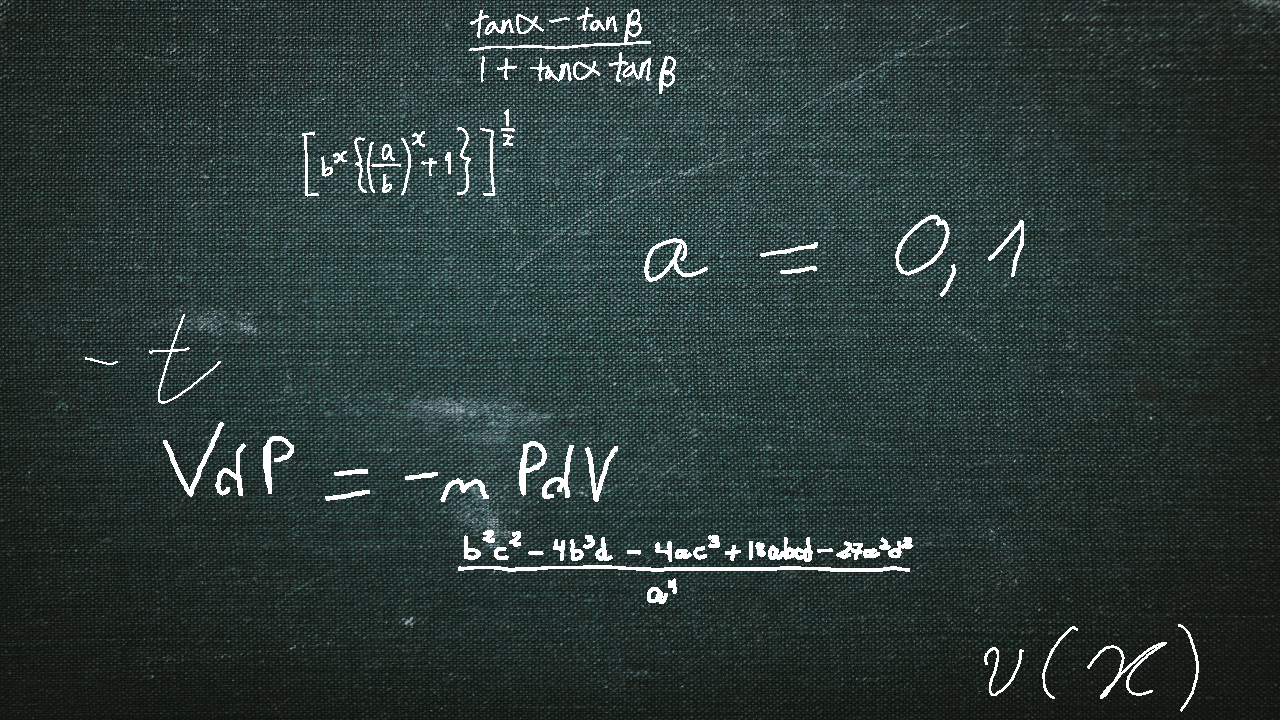 \frac{\tan\alpha - \tan\beta}{1 + \tan\alpha \tan\beta}
\left[ b^x \left\{ \left( \frac{a}{b} \right)^x + 1 \right\} \right]^{\frac{1}{2}}
a = 0,1
- t
VdP = -m PdV
\frac{b^2c^2 - 4b^3d - 4ac^3 + 18abcd - 27a^2d^2}{a^4}
v(x)